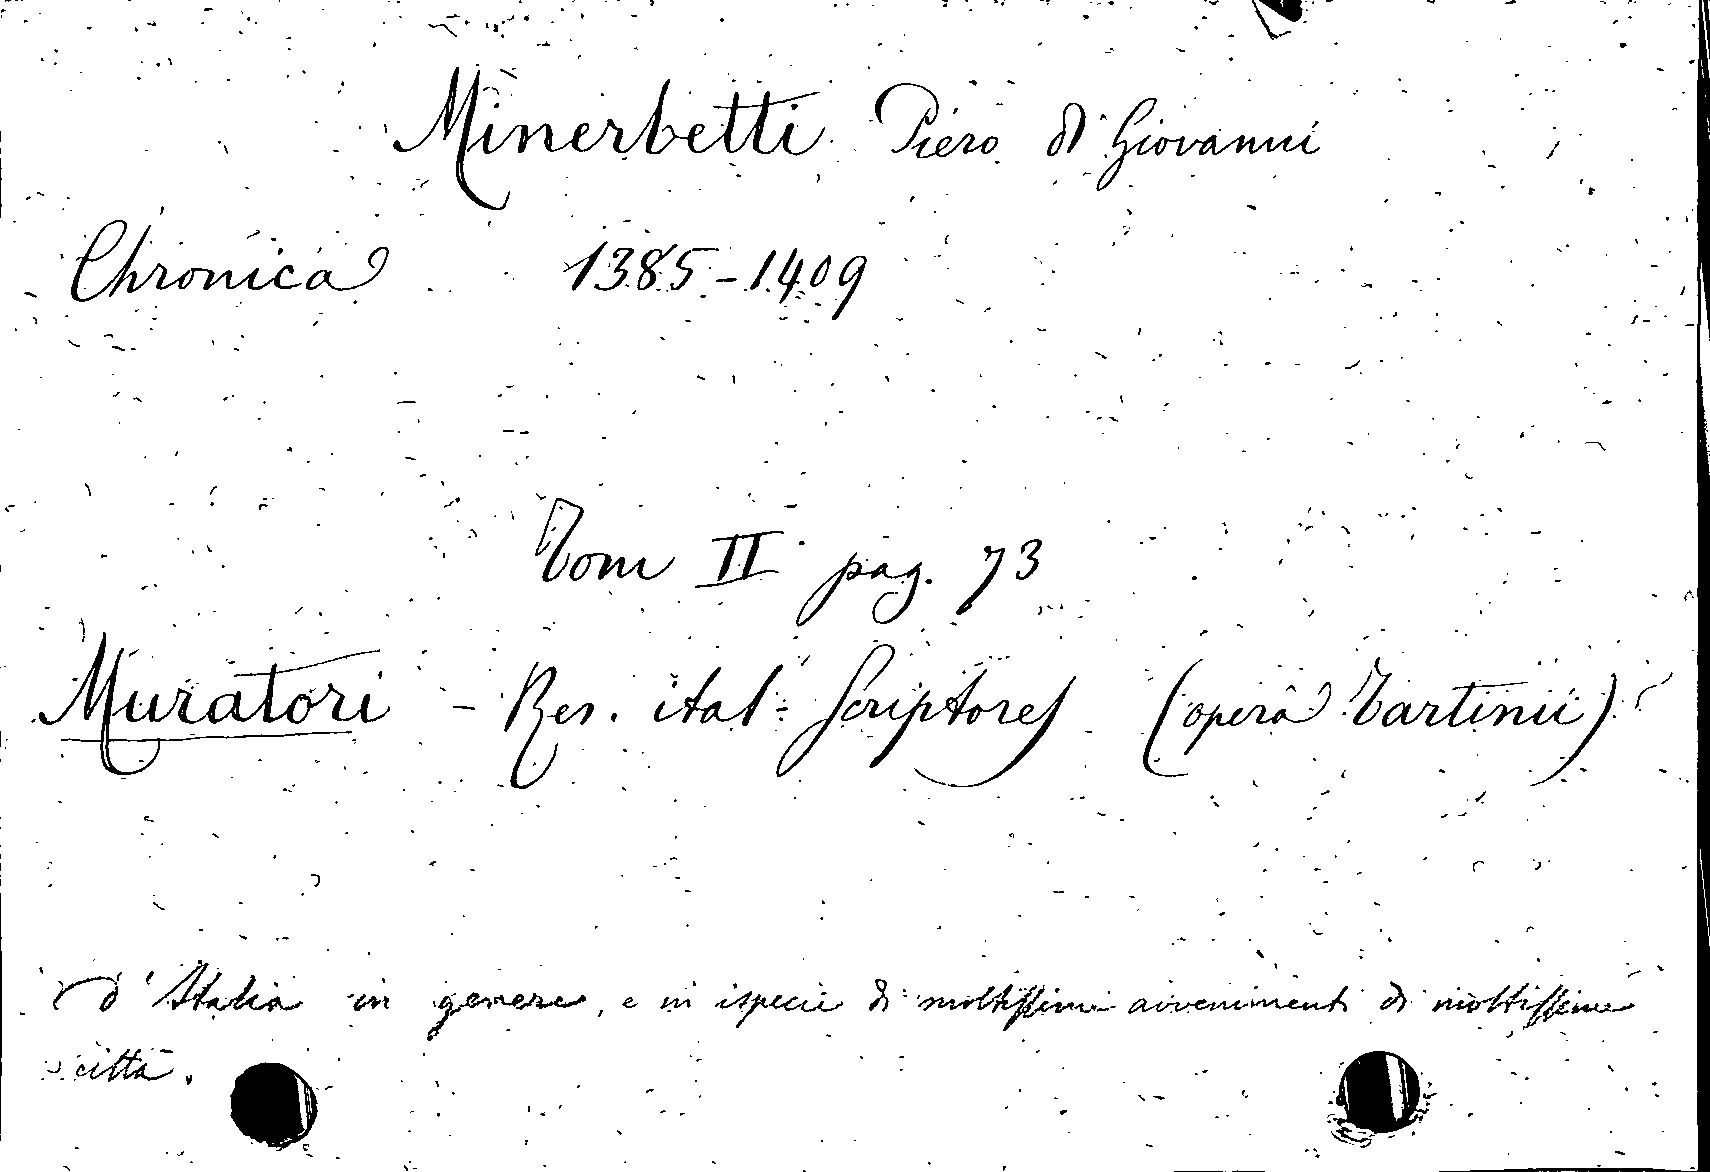 Minerbetti Piero di Giovanni
Chronica 1385-1409
Tom II pag. 73
Muratori - Rer. ital. Scriptores (opera Tartinii)
d'Italia in genere, e in ispecie di moltissimi avvenimenti di moltissime
città.